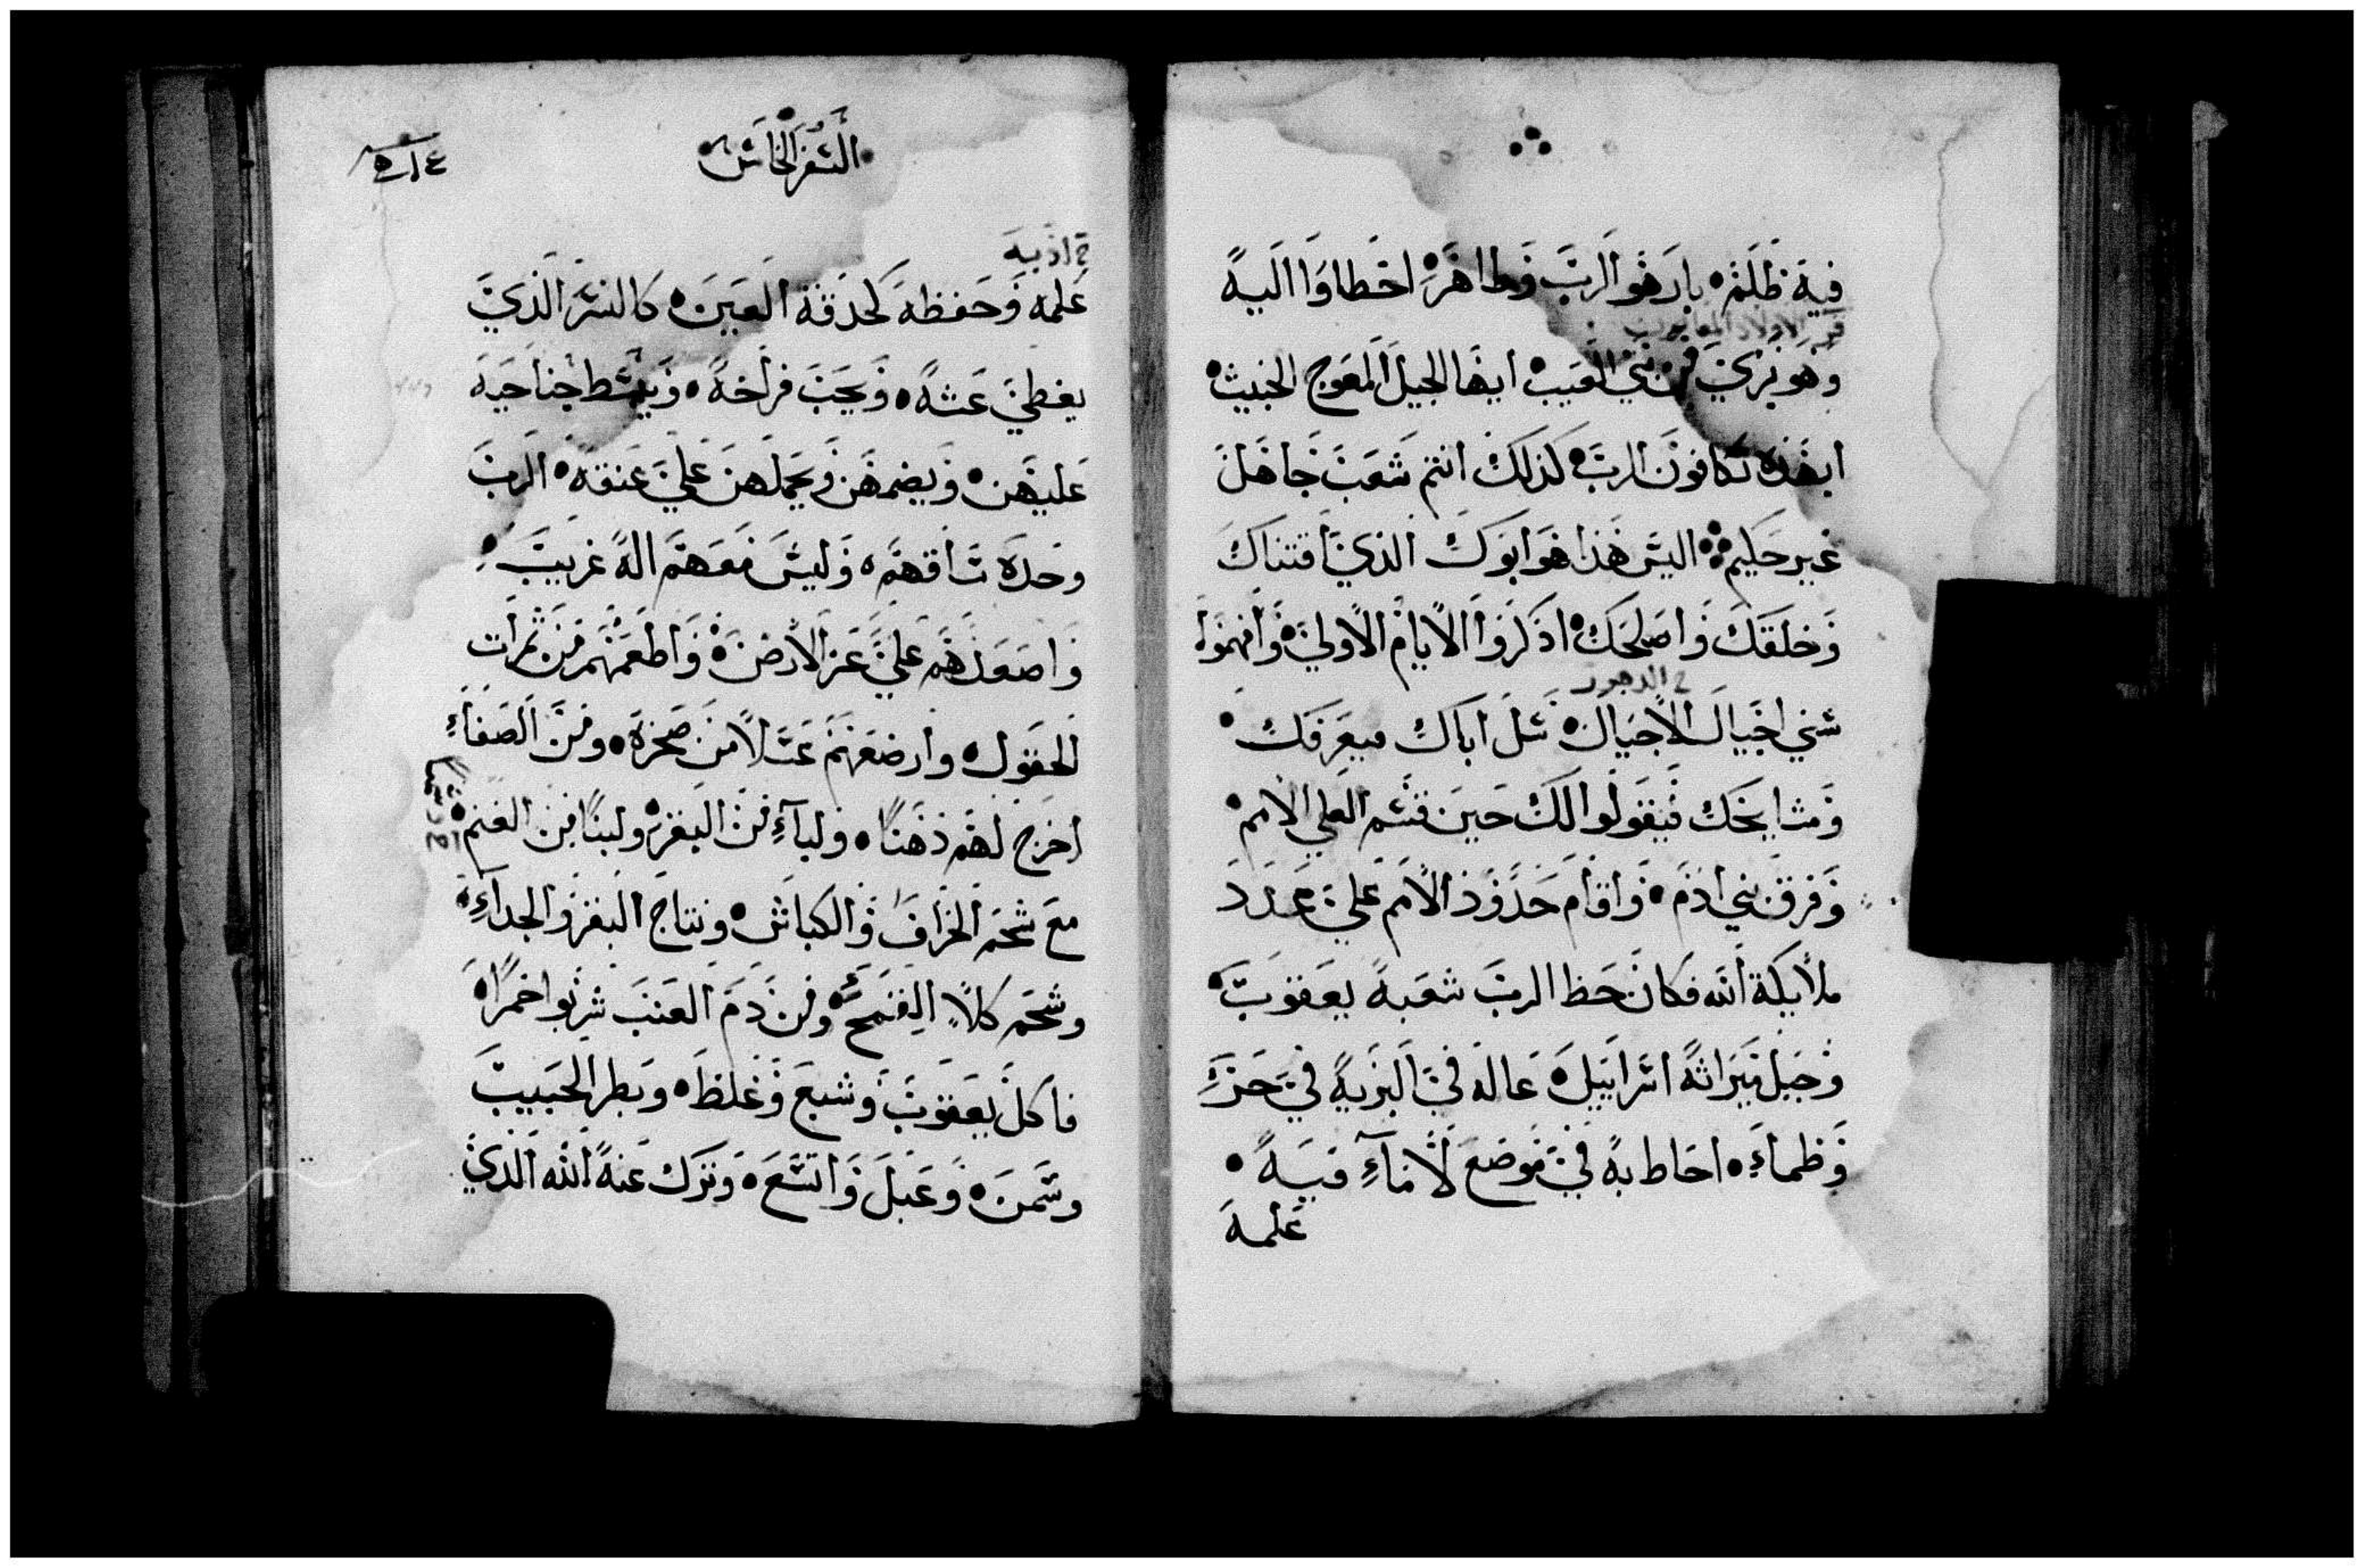 فيه ظلم بار هو الرب وطاهر اخطاوا اليه
وهو بري من بني العيب ايها الجيل المعوج الخبيث
ابهذه تكافون الرب كذلك انتم شعب جاهل
غير حكيم اليس هذا هو ابوك الذي اقتناك
وخلقك واصلحك اذكروا الايام الاولي وافهموا
ح الدهور
سني اجيال الاجيال سل اباك فيعرفك
ومشايخك فيقولوا لك حين قسم العلي الامم
وفرق بني ادم واقام حدود الامم علي عدد
ملايكة الله فكان حظ الرب شعبه يعقوب
وحبل ميراثه اسراييل عاله في البرية في حر
وظماء احاط به في موضع لا ماء فيه
علمه
السفر الخامس
ح ادبه
علمه وحفظه كحدقة العين كالنسر الذي
يغطي عشه ويحب فراخه ويبسط جناحيه
عليهن ويضمهن ويحملهن علي عنقه الرب
وحده ساقهم وليس معهم اله غريب
واصعدهم علي عز الارض واطعمهم من ثمرات
الحقول وارضعهم عسلا من صخرة ومن الصفاء
اخرج لهم دهنا ولباء من البقر ولبنا من الغنم
مع شحم الخراف والكباش ونتاج البقر والجداء
وشحم كلا القمح ومن دم العنب شربوا خمرا
فاكل يعقوب وشبع وغلظ وبطر الحبيب
وسمن وعبل واتسع وترك عنه الله الذي